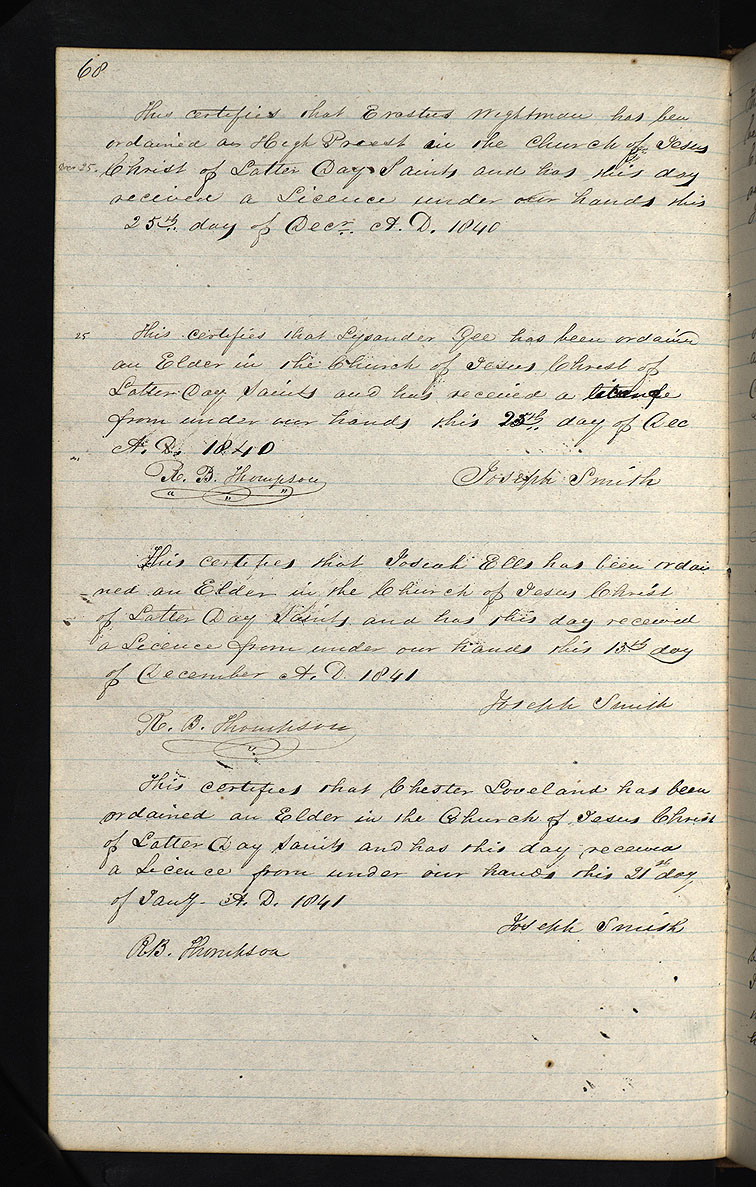 68
This certifies that Erastus Wightman has been
ordained an High Preest in the Church of Jesus
Decr 25. Christ of Latter Day Saints and has this day
received a Licence under our hands this
25th. day of Decr. A. D. 1840
25 This certifies that Lysander Gee has been ordained
an Elder in the Church of Jesus Christ of
Latter Day Saints and has received a licence
from under our hands this 25th. day of Dec
A. D. 1840
R. B. Thompson Joseph Smith
This certifies that Josiah Ells has been ordai
ned an Elder in the Church of Jesus Christ
of Latter Day Saints and has this day received
a Licence from under our hands this 15th day
of December A. D. 1841
Joseph Smith
R. B. Thompson
This certifies that Chester Loveland has been
ordained an Elder in the Church of Jesus Christ
of Latter Day Saints and has this day received
a Licence from under our hands this 21st day
of Jany- A. D. 1841
Joseph Smith
R.B. Thompson